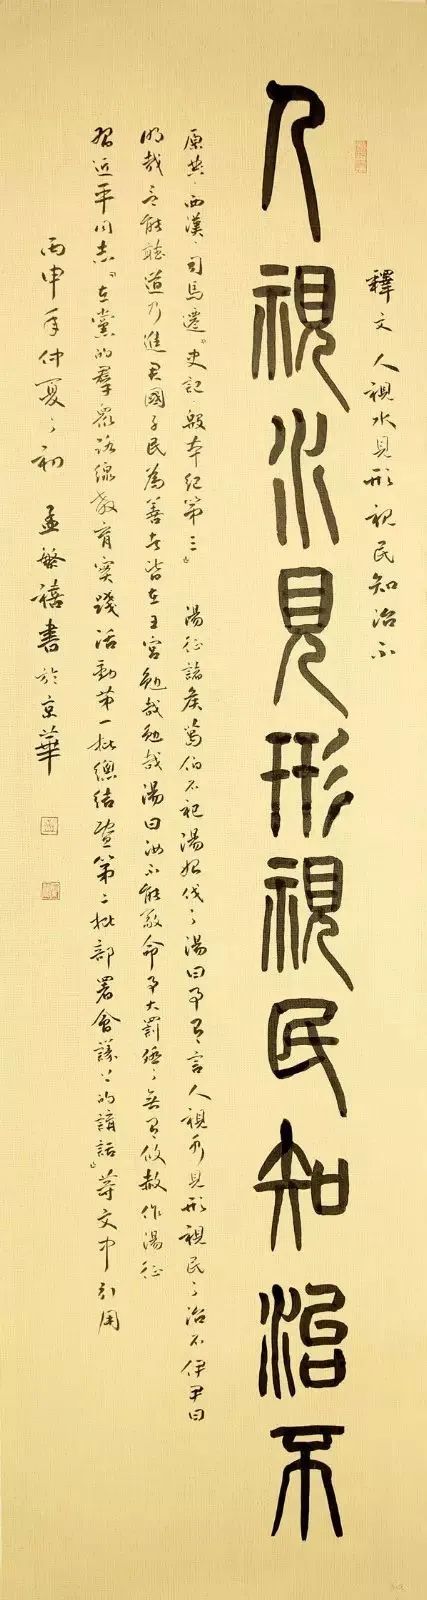 釋文 人視水見形視民知治不
人視水見形視民知治不
原典·西漢·司馬遷《史記·殷本紀第三》 湯征諸侯葛伯不祀湯始伐之湯曰予有言人視水見形視民知治不伊尹曰
明哉言能聽道乃進君國子民為善者皆在王官勉哉勉哉湯曰汝不能敬命予大罰殛之無有攸赦作湯征
習近平同志《在黨的羣眾路線教育實踐活動第一批總結暨第二批部署會議上的講話》等文中引用
丙申年仲夏之初 孟繁禧書於京華